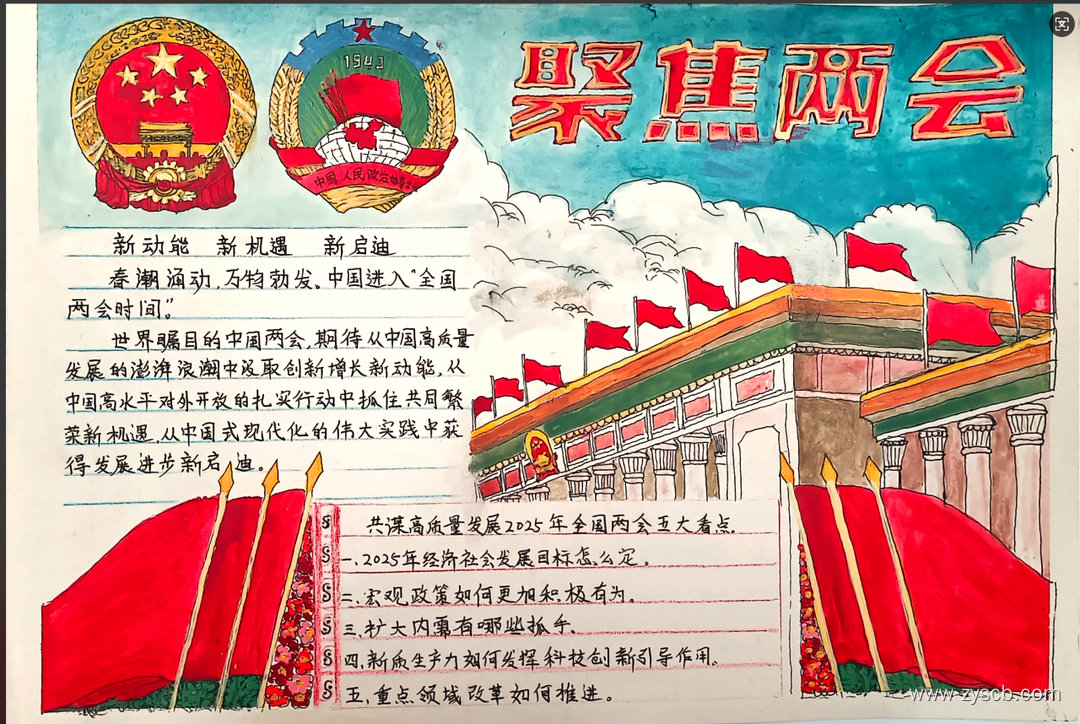 聚焦两会
1943
中国人民政治
新动能 新机遇 新启迪
春潮涌动,万物勃发、中国进入“全国
两会时间”。
世界瞩目的中国两会,期待从中国高质量
发展的澎湃浪潮中汲取创新增长新动能,从
中国高水平对外开放的扎实行动中抓住共同繁
荣新机遇,从中国式现代化的伟大实践中获
得发展进步新启迪。
共谋高质量发展2025年全国两会五大看点.
一、2025年经济社会发展目标怎么定。
二、宏观政策如何更加积极有为。
三、扩大内需有哪些抓手。
四、新质生产力如何发挥科技创新引导作用。
五、重点领域改革如何推进。
www.zyscb.com